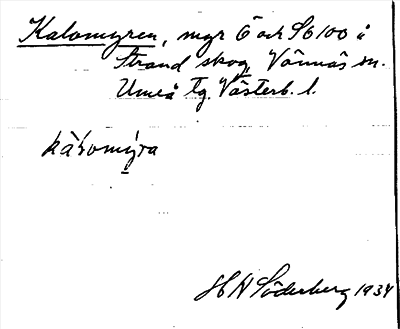 Kalomyren, myr Ö och S6100 i
Strand skog Vännäs sn.
Umeå tg. Västerb. l.
kàlomýra
H N Söderberg 1934